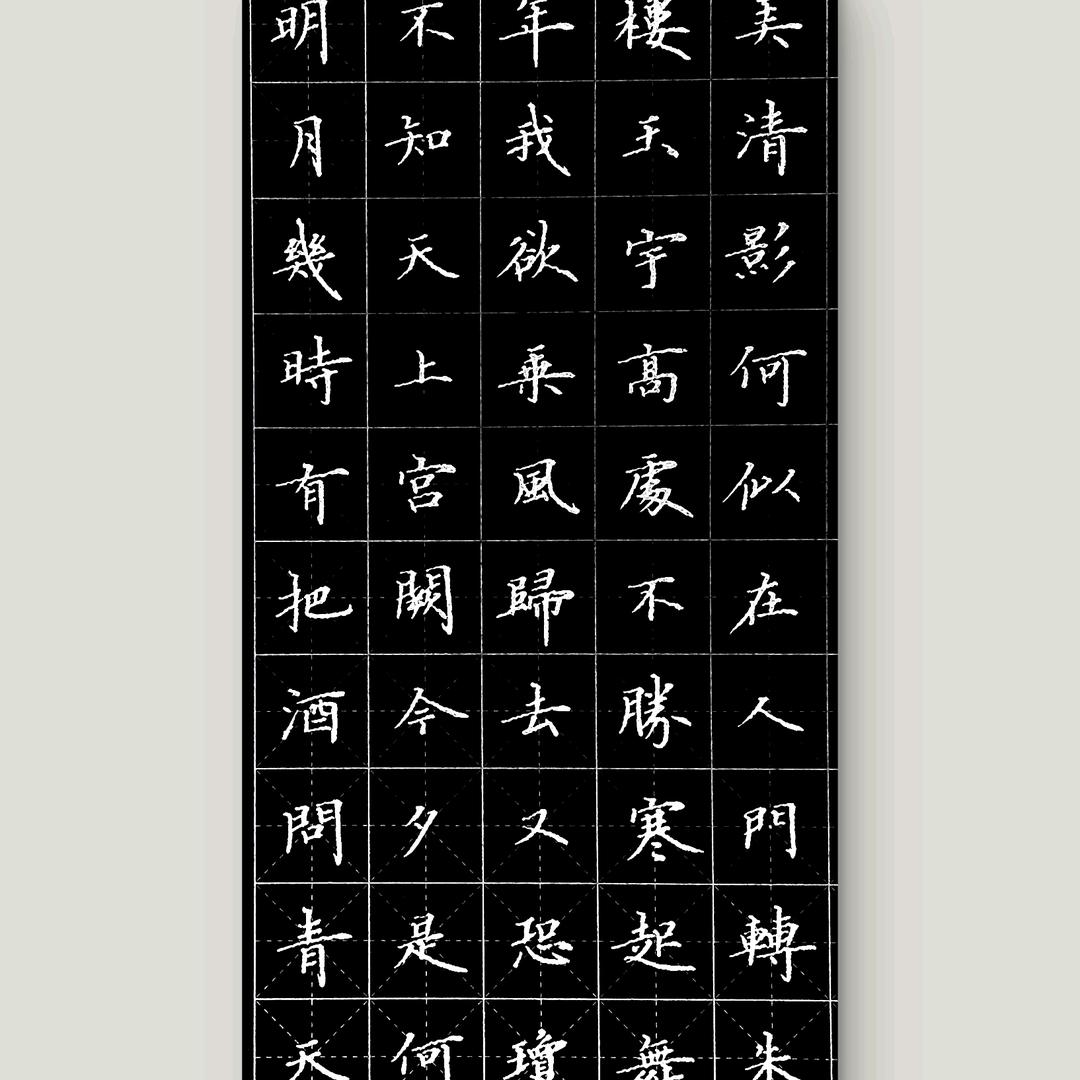 明月幾時有把酒問青天
不知天上宮闕今夕是何
年我欲乗風歸去又恐瓊
樓玉宇髙處不勝寒起舞
清影何似在人門轉朱